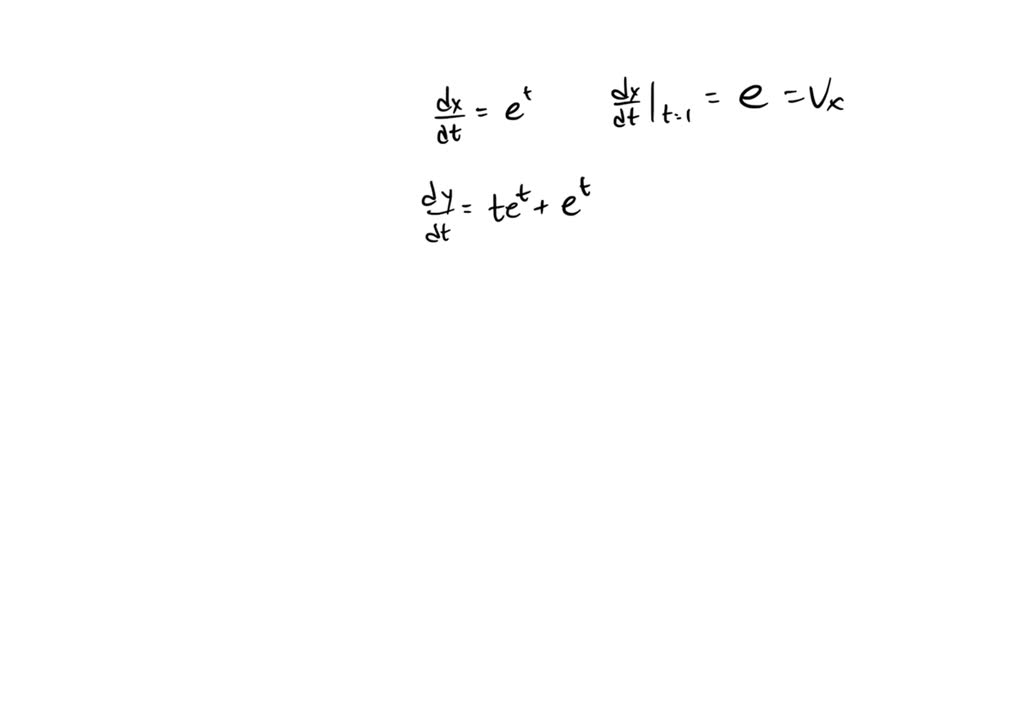 dx/dt = e^t   dx/dt|t=1 = e = Vx
dy/dt = te^t + e^t